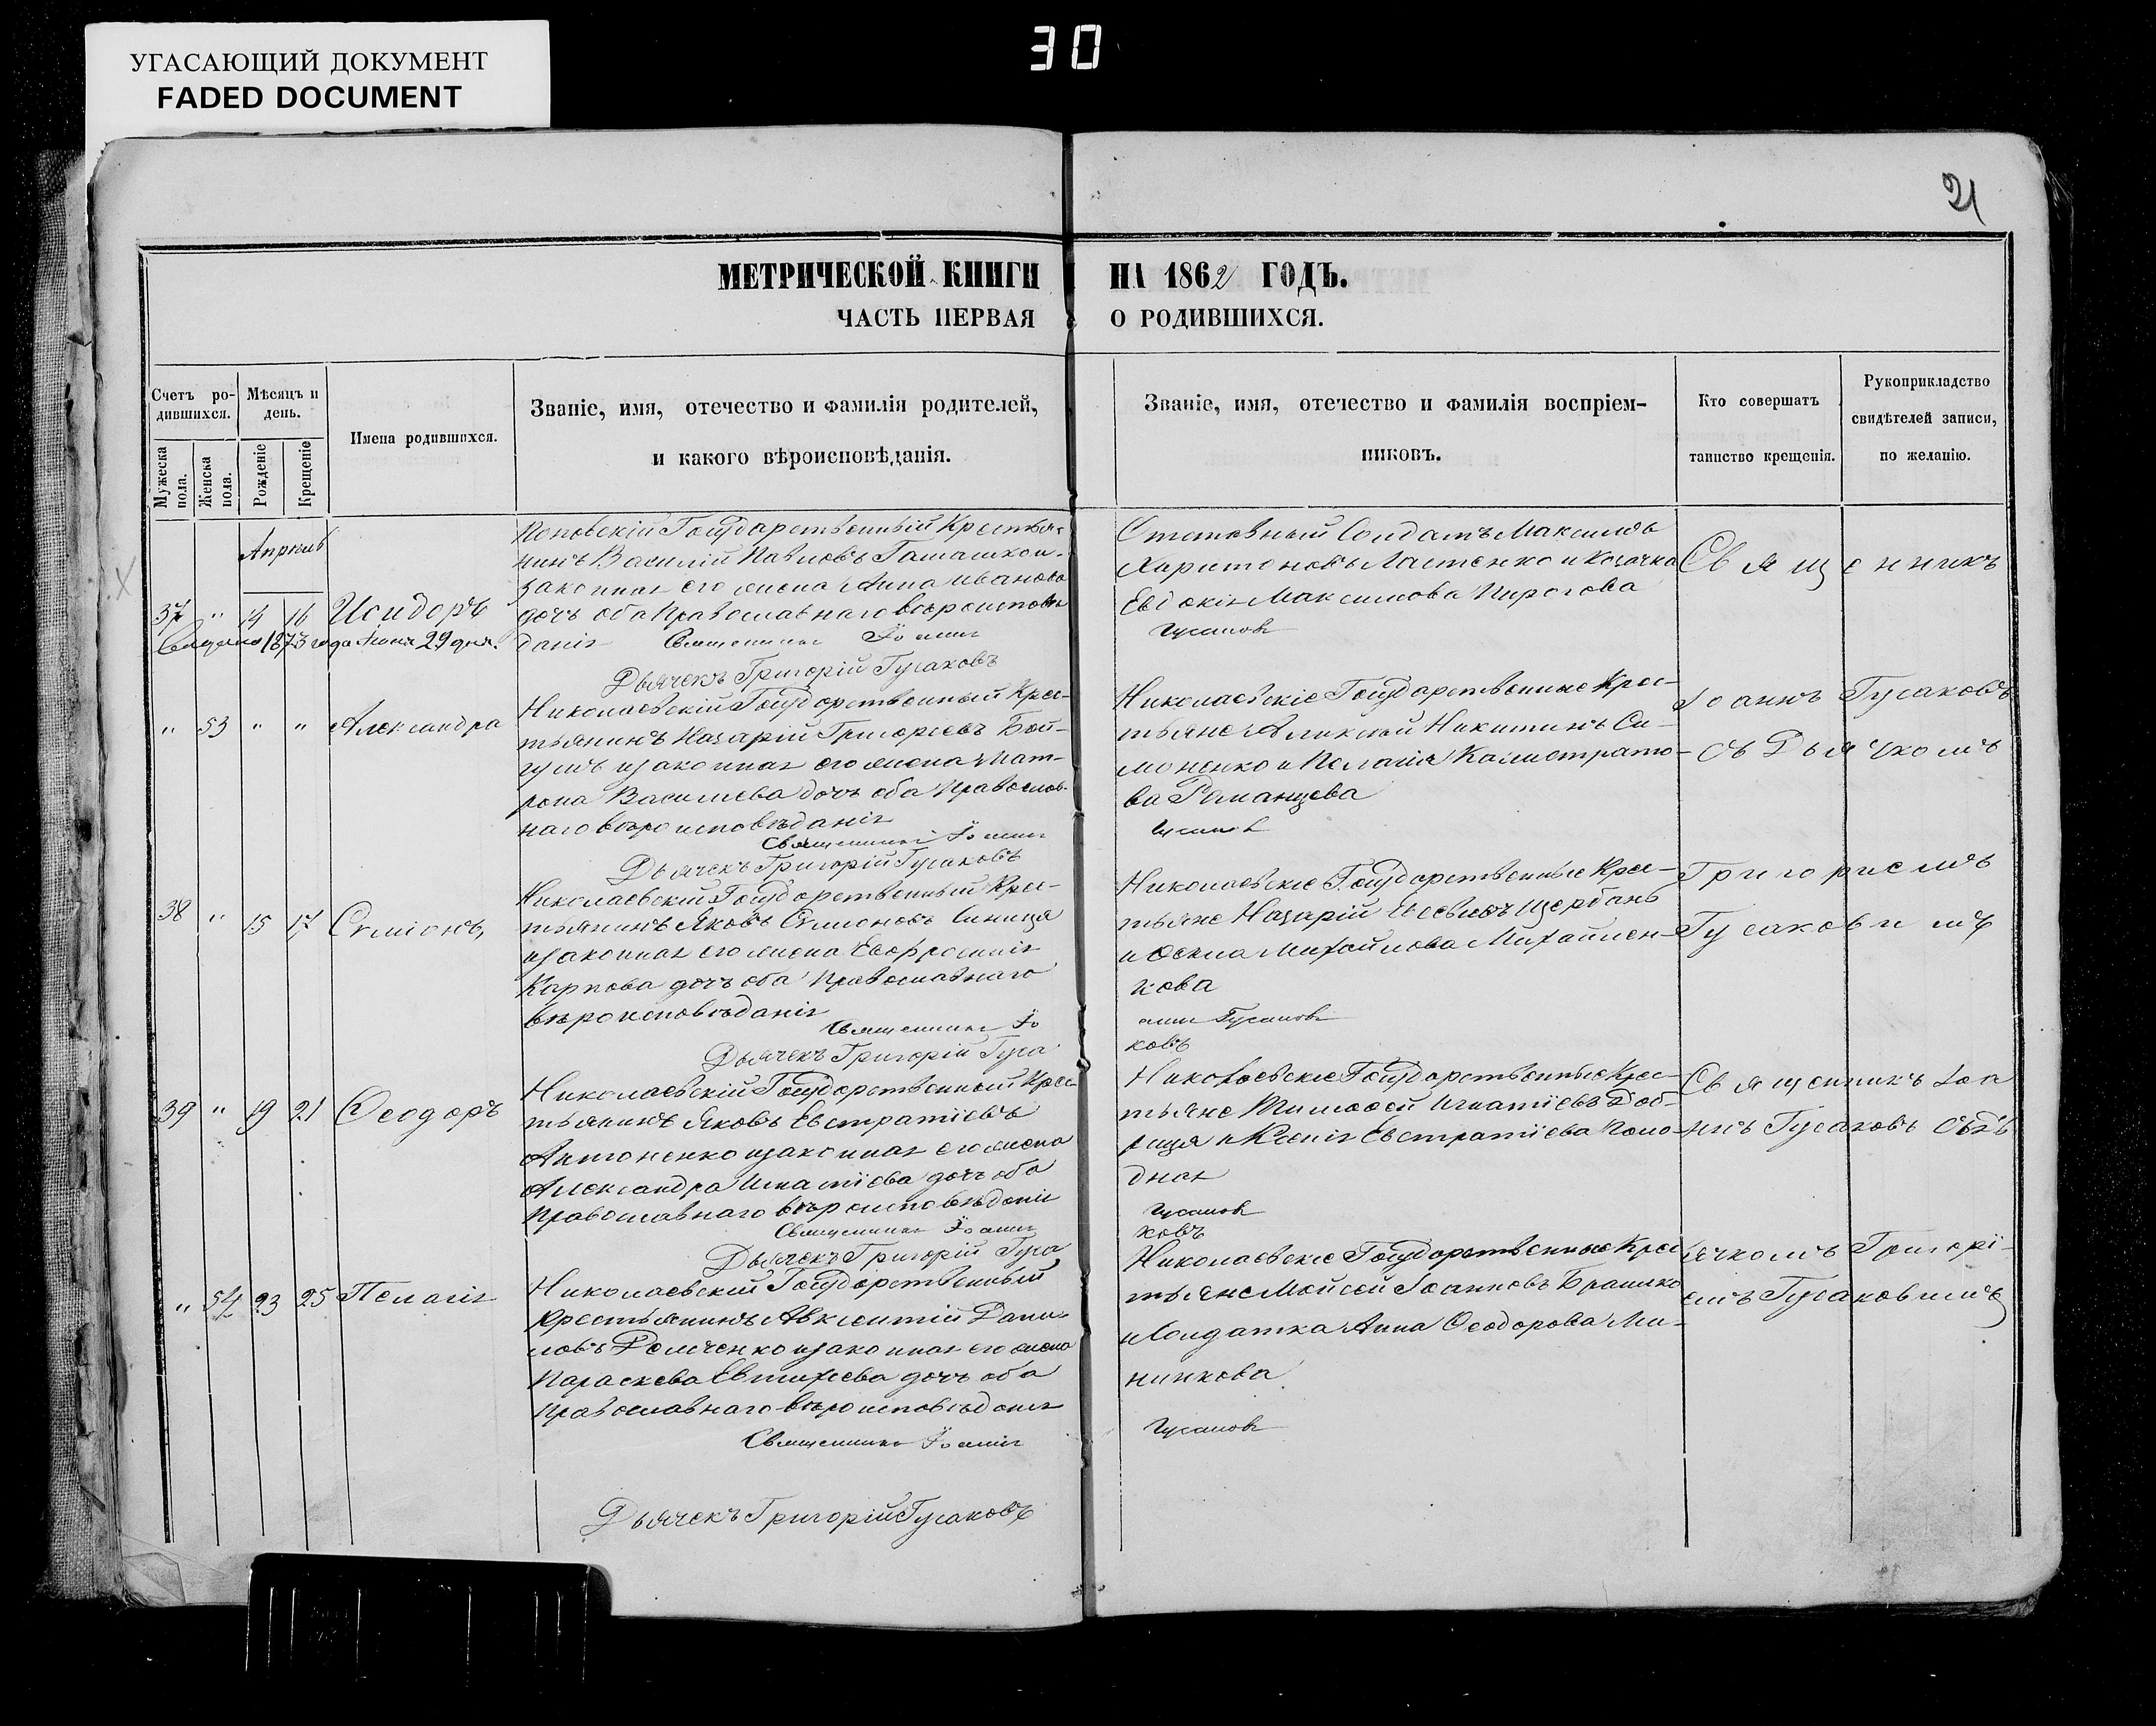 УГАСАЮЩИЙ ДОКУМЕНТ
FADED DOCUMENT
30
21
МЕТРИЧЕСКОЙ КНИГИ НА 1862 ГОДЪ.
ЧАСТЬ ПЕРВАЯ О РОДИВШИХСЯ.
Счетъ ро-
дившихся.
Мѣсяцъ и
день.
Мужеска
пола.
Женска
пола.
Рожденіе
Крещеніе
Имена родившихся.
Званіе, имя, отечество и фамилія родителей,
и какого вѣроисповѣданія.
Званіе, имя, отечество и фамилія воспріем-
никовъ.
Кто совершатъ
таинство крещенія.
Рукоприкладство
свидѣтелей записи,
по желанію.
Априль
37 " 14 16 Исидоръ
Поповскій Государственный Крестья-
нинъ Василій Павловъ и
законная его жена Анна Иванова
дочь оба Православнаго вѣроисповѣ
данія Священникъ Іоаннъ
Дьячекъ Григорій Гусаковъ
1873 года Іюня 29 дня.
Отставный Солдатъ Максимъ
Харитоновъ Ластенко и Козачка
Евдокія Максимова Пирогова
Гусаковъ
Священникъ
" 53 " " Александра
Николаевскій Государственный Крес-
тьянинъ Назарій Григорьевъ Бой-
и законная его жена Мат-
рона Васильева дочь оба Православ-
наго вѣроисповѣданія
Священникъ Іоаннъ
Дьячекъ Григорій Гусаковъ
Николаевскіе Государственные Крес-
тьяне Никитинъ Си-
моненко и Пелагія Калистрато-
ва Раманцева
Гусаковъ
Іоаннъ Гусаковъ
съ Дьячкомъ
38 " 15 17 Симіонъ
Николаевскій Государственный Крес-
тьянинъ Яковъ Симіоновъ Синица
и законная его жена Евфросинія
Карпова дочь оба Православнаго
вѣроисповѣданія
Священникъ Іо
Дьячекъ Григорій Гуса
Николаевскіе Государственные Крес-
тьяне Назарій Щербань
и Михайлова Михайлен-
кова
аннъ Гусаковъ
ковъ
Григориемъ
Гусаковымъ
39 " 19 21 Ѳеодоръ
Николаевскій Государственный Крес-
тьянинъ Яковъ Евстратіевъ
Антоненко и законная его жена
Александра Игнатіева дочь оба
Православнаго вѣроисповѣданія
Священникъ Іоаннъ
Дьячекъ Григорій Гуса
Николаевскіе Государственные Крес-
тьяне Тимоѳей Игнатіевъ Доб-
рица и Ксенія Евстратіева Голо-
дная
Гусаковъ
ковъ
Священникъ Іоа
ннъ Гусаковъ съ Дь
" 54 23 25 Пелагія
Николаевскій Государственный
Крестьянинъ Авксентій Дани-
ловъ Демченко и законная его жена
Параскева Евтихіева дочь оба
Православнаго вѣроисповѣданія
Священникъ Іоаннъ
Дьячекъ Григорій Гусаковъ
Николаевскіе Государственные Крес
тьяне Мойсей Іоанновъ Брашко
и Солдатка Анна Ѳеодорова Ми-
нинкова
Гусаковъ
ячкомъ Григорі-
емъ Гусаковымъ